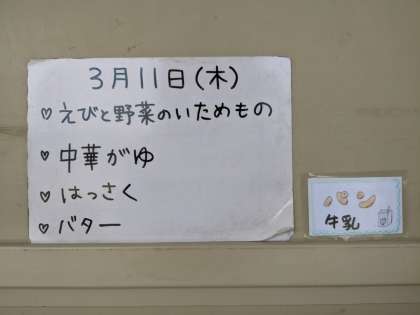 3月11日(木)
♡えびと野菜のいためもの
♡中華がゆ
♡はっさく
♡バター
パン
牛乳